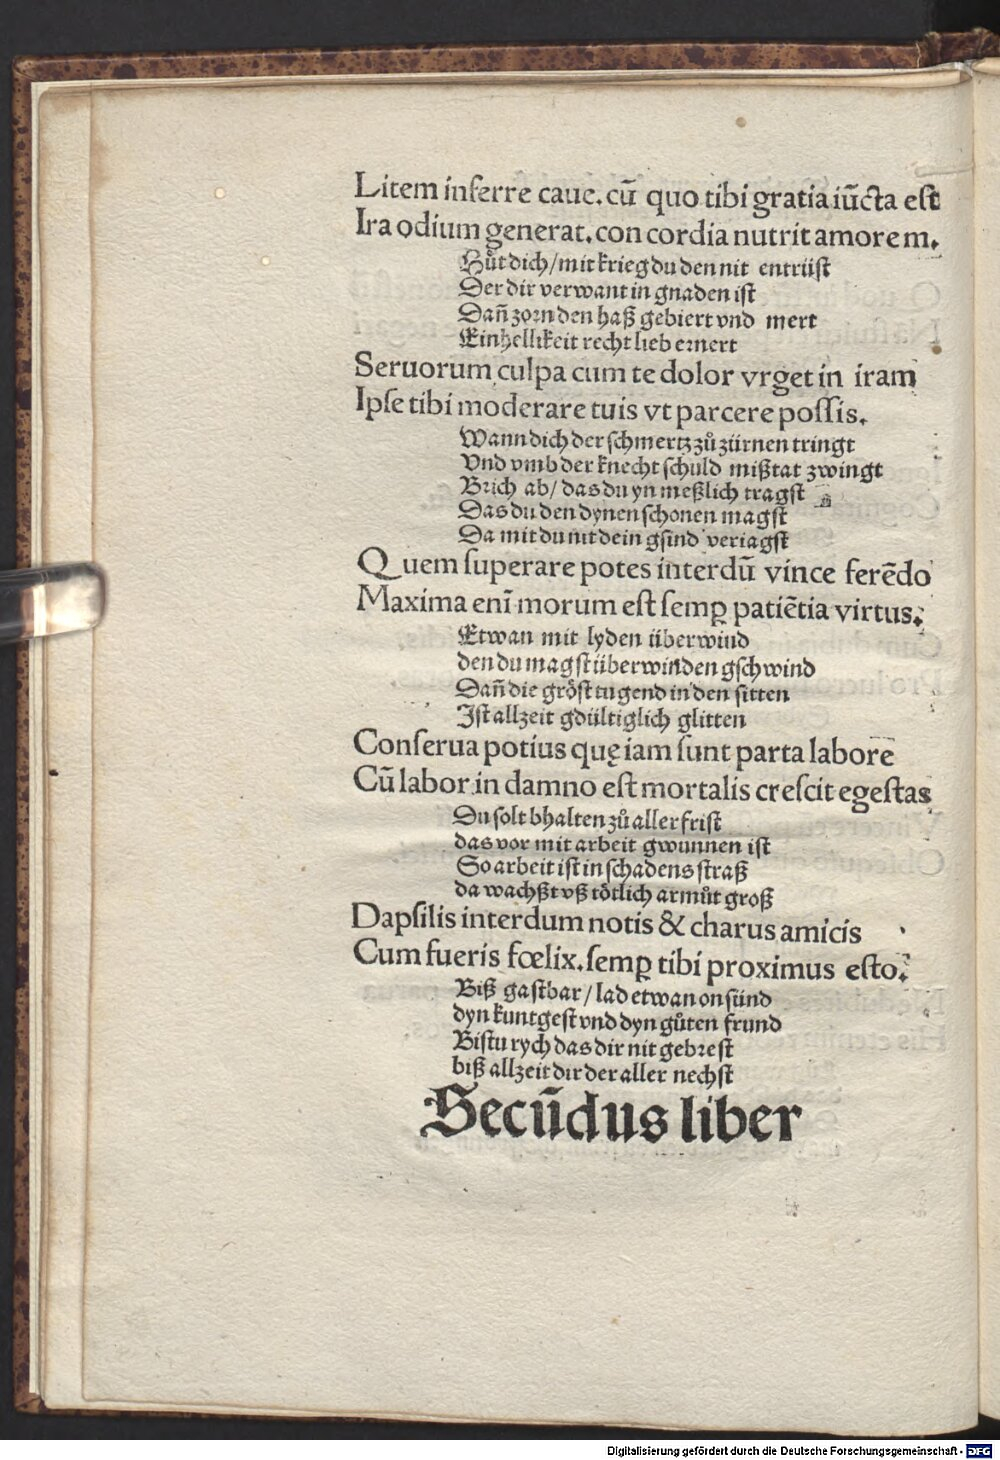 Litem inferre caue. cū quo tibi gratia iūcta est
Ira odium generat. concordia nutrit amorem.
Hůt dich/ mit krieg du den nit entrüst
Der dir verwant in gnaden ist
Dañ zorn den haß gebiert vnd mert
Einhellikeit recht lieb ernert
Seruorum culpa cum te dolor vrget in iram
Ipse tibi moderare tuis vt parcere possis.
Wann dich der schmertz zů zürnen tringt
Vnd vmb der knecht schuld mißtat zwingt
Brich ab/ das du yn meßlich tragst
Das du den dynen schonen magst
Da mit du nit dein gsind veriagst
Quem superare potes interdū vince ferēdo
Maxima eni̅ morum est semꝑ patiētia virtus.
Etwan mit lyden überwind
den du magst überwinden gschwind
Dañ die gröst tugend in den sitten
Ist allzeit gdültiglich glitten
Conserua potius quę iam sunt parta labore
Cū labor in damno est mortalis crescit egestas
Du solt bhalten zů aller frist
das vor mit arbeit gwunnen ist
So arbeit ist in schadens straß
da wachßt vß tötlich armůt groß
Dapsilis interdum notis & charus amicis
Cum fueris fœlix. semꝑ tibi proximus esto.
Biß gastbar/ lad etwan on sünd
dyn kuntgest vnd dyn gůten frund
Bistu rych das dir nit gebrest
biß allzeit dir der aller nechst
Secūdus liber
Digitalisierung gefördert durch die Deutsche Forschungsgemeinschaft - DFG